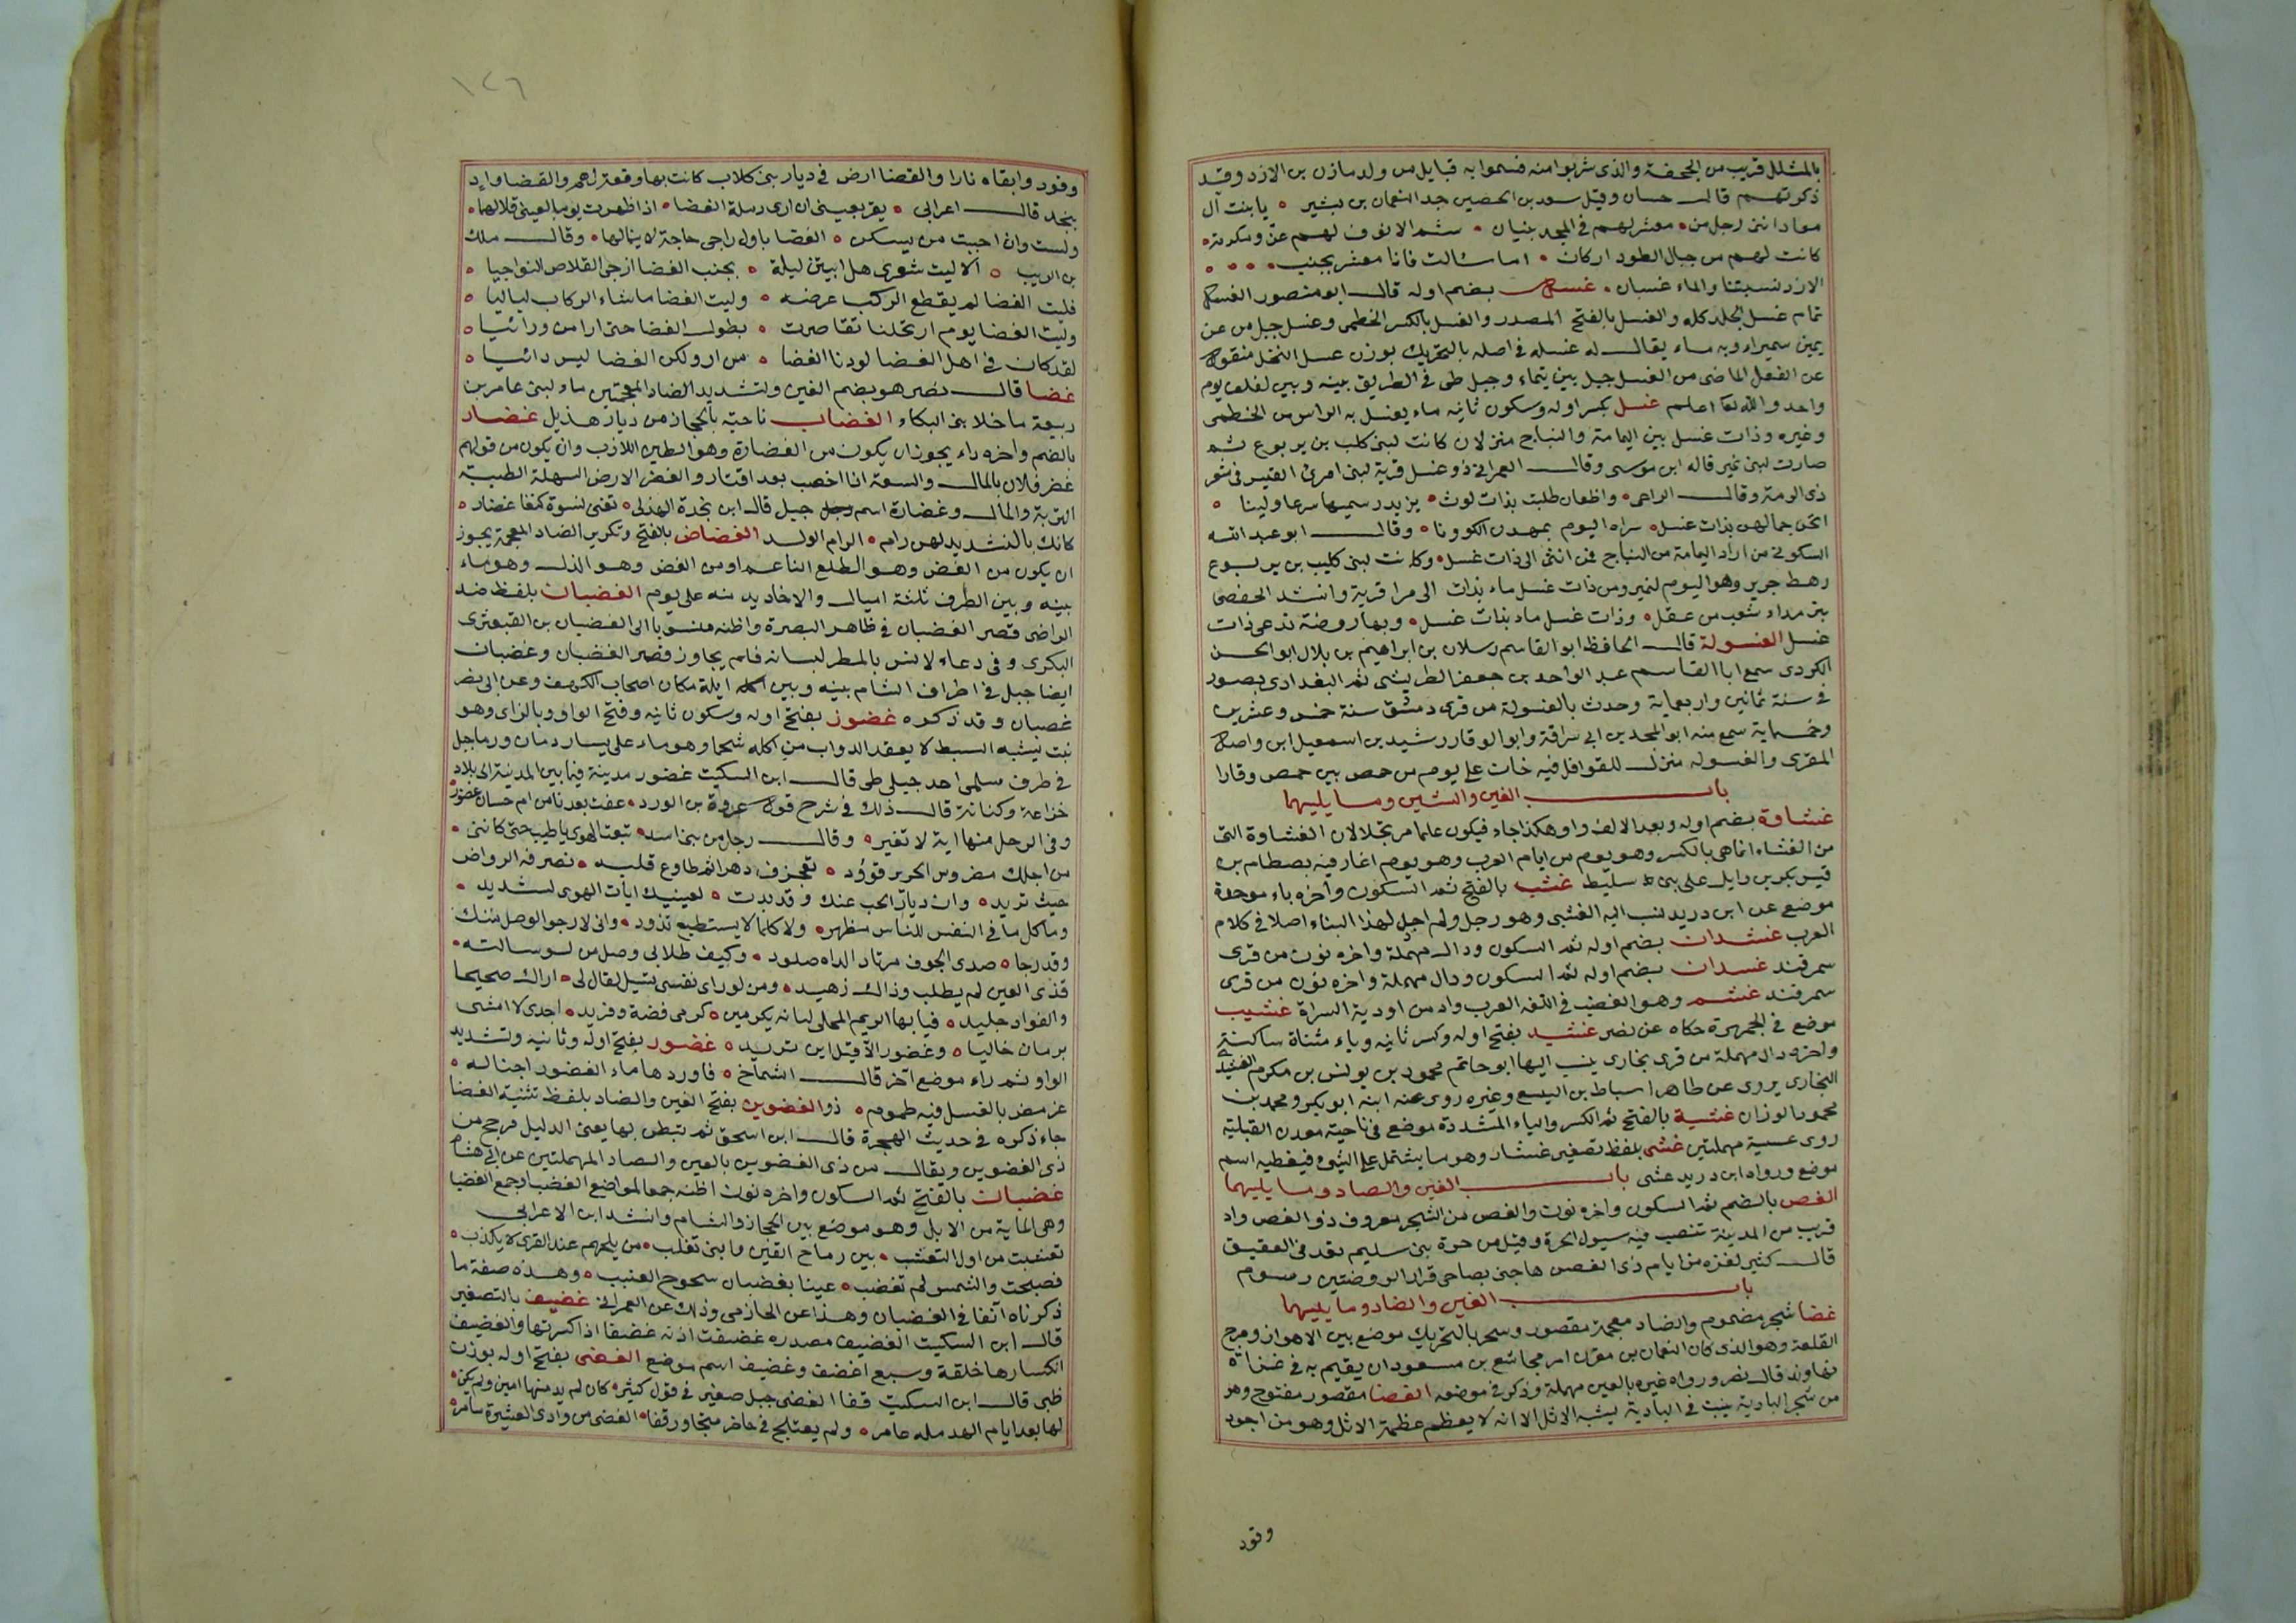 بالمشلل قريب من الجحفة والذى شربوا منه فسموا به قبايل من ولد مازن بن الازد وقد
ذكرتهم قال حسان وقيل سعد بن الحصين جد النعمان بن بشير ٥ يا بنت آل
معاد اننى رجل من ٥ معشر لهم فى المجد بنيان ٥ شم الانوف لهم عز ومكرمة ٥
كانت لهم من جبال الطود اركان ٥ اما سالت فانا معشر بجنب ٥ ٥ ٥
الازد نسبتنا والماء غسان ٥ غسل بضم اوله قال ابو منصور الغسل
تمام غسل الجلد كله والغسل بالفتح المصدر والغسل بالكسر الخطمى وغسل جبل من عن
يمين سميراء وبه ماء يقال له غسله فى اصله بالتحريك بوزن عسل النخل منقول
عن الفعل الماضى من الغسل جبل بين تيماء وجبل طى فى الطريق بينه وبين لفلف يوم
واحد والله تعا اعلم غسل بكسر اوله وسكون ثانيه ماء يغسل به الراس من الخطمى
وغيره وذات غسل بين اليمامة والنباج منزلان كانت لبنى كلب بن يربوع ثم
صارت لبنى نمير قاله ابن موسى وقال العمرانى ذو غسل قرية لبنى امرئ القيس فى شعر
ذى الرمة وقال الراعى ٥ واظعان طلبت بذات لوث ٥ يزيد رسيمها سرعا ولينا ٥
انخن جمالهن بذات غسل ٥ سراه اليوم يمهدن الكوونا ٥ وقال ابو عبد الله
السكونى من اراد اليمامة من النباج فمن اثنى الى ذات غسل ٥ وكانت لبنى كليب بن يربوع
رهط جرير وهو اليوم لنمير ومن ذات غسل ماء بذات الى مرا قرية وانشد الحفصى
بثرمداء شعب من عقل ٥ وذات غسل ماد بذات غسل ٥ وبها روضة تدعى ذات
غسل الغسولة قال الحافظ ابو القاسم رسلان بن ابراهيم بن بلال ابو الحسن
الكردى سمع ابا القاسم عبد الواحد بن جعفر الطريثثى ثم البغدادى بصور
فى سنة ثمانين واربعماية وحدث بالغسولة من قرى دمشق سنة خمس وعشرين
وخمسماية سمع منه ابو المجد بن ابى سراقة وابو الوقار رشيد بن اسمعيل ابن واصل
المقرى والغسوله منزل للقوافل فيه خان على يوم من حمص بين حمص وقارا
باب الغين والشين وما يليهما
غشاوة بضم اوله وبعد الالف واو هكذا جاء فيكون علما مرتجلا لان الغشاوة التى
من الغشاء انما هى بالكسر وهو يوم من ايام العرب وهو يوم اغار فيه بصطام بن
قيس بكر بن وايل على بنى سليط غشب بالفتح ثم السكون واخره باء موحدة
موضع عن ابن دريد نسب اليه الغشبى وهو رجل ولم اجد لهذا البناء اصلا فى كلام
العرب غشدان بضم اوله ثم السكون ودال مهملة واخره نون من قرى
سمرقند غسدان بضم اوله ثم السكون ودال مهملة واخره نون من قرى
سمرقند غشم وهو الغضب فى اللغه العرب واد من اودية السراة غشيب
موضع فى الجمهرة حكاه عن نصر غشيد بفتح اوله وكسر ثانيه وياء مثناة ساكنة
واخره دال مهملة من قرى بخارى ينسب اليها ابو حاتم محمود بن يونس بن مكرم الغشيدى
البخارى يروى عن طاهر اسباط بن اليسع وغيره روى عنه ابنه ابو بكر ومحمد بن
محمود الوزان غشية بالفتح ثم الكسر والياء المشددة موضع فى ناحية معدن القبلية
روى عسية مهملتين غشى بلفظ تصغير غشاء وهو ما يشتمل على الشىء فيغطيه اسم
موضع ورواه ابن دريد عشى باب الغين والصاد وما يليهما
الغص بالضم ثم السكون واخره نون والغصن من الشجر معروف ذو الغصن واد
قريب من المدينة تنصب فيه سيول الحرة وقيل من حرة بنى سليم يعد فى العقيق
قال كثير لعزه من ايام ذى الغصن هاجنى بضاحى قرار الروضتين رسوم
باب الغين والضاد وما يليهما
غضا شجر مضموم والضاد معجمة مقصور وسحر بالتحريك موضع بين الاهواز ومرج
القلعة وهو الذى كان النعمان بن مقرن امر مجاشع بن مسعود ان يقيم به فى غزاة
نهاوند قال نصر ورواه غيره بالعين مهملة وذكر فى موضعه الغضا مقصور مفتوح وهو
من شجر البادية ينبت فى البادية يشبه الاثل الا انه لا يعظم عظمة الاثل وهو من اجود
وقود
١٢٦
وقود وابقاه نارا والغضا ارض فى ديار بنى كلاب كانت بها وقعة لهم والغضا واد
بنجد قال اعرابى ٥ يقر بعينى ان ارى رملة الغضا ٥ اذا ظهرت يوما لعينى قلالها ٥
ولست وان احببت من يسكن ٥ الغضا باول راجى حاجة لا ينالها ٥ وقال ملك
بن الريب ٥ الا ليت شعرى هل ابيتن ليلة ٥ بجنب الغضا ازجى القلاص النواجيا ٥
فليت الغضا لم يقطع الركب عرضه ٥ وليت الغضا ماشاء الركاب لياليا ٥
وليت الغضا يوم ارتحلنا تقاصرت ٥ بطول الغضا حتى ارا من ورائيا ٥
لقد كان فى اهل الغضا لو دنا الغضا ٥ مزار ولكن الغضا ليس دانيا ٥
غضا قال نصر هو بضم الغين وتشديد الضاد المعجمتين ماء لبنى عامر بن
ربيعة ما خلا بنى البكاء الغضاب ناحية بالحجاز من ديار هذيل غضار
بالضم واخره راء يجوز ان يكون من الغضارة وهو الطين اللازب وان يكون من قولهم
غضر فلان بالمال والسعة اذا اخصب بعد اقتار والغضر الارض السهلة الطيبة
التربة والمال وغضارة اسم رجل جبل قال ابن نجدة الهذلى ٥ تغنى نسوة كنفا غضار ٥
كانك بالنشيد لهن رام ٥ الرام الولد الغضاض بالفتح وتكرير الضاد المعجمة يجوز
ان يكون من الغض وهو الطلع الناعم او من الغض وهو الذل وهو ماء
بينه وبين الطرف ثلثة اميال والاخاديد منه على يوم الغضبان بلفظ ضد
الراضى قصر الغضبان فى ظاهر البصرة واظنه منسوبا الى الغضبان بن القبعثرى
البكرى وفى دعاء لانس بالمطر لبستانه فلم يجاوز قصر الغضبان وغضبان
ايضا جبل فى اطراف الشام بينه وبين ايلة مكان اصحاب الكهف وعن ابى نصر
غضبان وقد ذكره غضوز بفتح اوله وسكون ثانيه وفتح الواو وبالزاى وهو
نبت يشبه السبط لا يعقد الدواب من اكله شحما وهو ماء على يسار رمان ورماجبل
فى طرف سلمى احد جبلى طى قال ابن السكيت غضور مدينة فيما بين المدينة الى بلاد
خزاعة وكنانة قال ذلك فى شرح قول عروة بن الورد ٥ عفت بعدنا من ام حسان غضور
وفى الرحل منها اية لا تغير ٥ وقال رجل من بنى اسد ٥ تبعت الهوى يا طيب حتى كاننى ٥
من اجلك مضروس الجرير قوؤد ٥ تعجرف دهرا ثم طاوع قلبه ٥ نصرفه الرواض
حيث تريد ٥ وان ذياد الحب عنك وقد بدت ٥ لعينيك ايات الهوى لشديد ٥
وما كل ما فى النفس للناس مظهر ٥ ولا كلما لا يستطيع تذود ٥ وانى لارجو الوصل منك
وقد رجا ٥ صدى الجوف مرتاد الداه صلود ٥ وكيف طلابى وصل من لو سالته ٥
قذى العين لم يطلب وذاك زهيد ٥ ومن لو راى نفسى تسيل لقال لى ٥ اراك صحيحا
والفواد جليد ٥ فيا بها الريم المحلى لبانه بكرمين ٥ كرمى فضة وفريد ٥ اجدى لا امشى
برمان خاليا ٥ وغضور الا قيل اين تريد ٥ غضور بفتح اوله وثانيه وتشديد
الواو ثم راء موضع آخر قال الشماخ ٥ فاوردها ماء الغضور اجنا له ٥
عرمض بالغسل فيه طموم ٥ ذو الغضوين بفتح الغين والضاد بلفظ تثنية الغضا
جاء ذكره فى حديث الهجرة قال ابن اسحق ثم تبطن بها يعنى الدليل مرجح من
ذى الغضوين ويقال من ذى العضوين بالعين والصاد المهملتين عن ابى هشام
غضيان بالفتح ثم السكون واخره نون اظنه جمعا لمواضع الغضبا وجمع الغضيا
وهى الماية من الابل وهو موضع بين الحجاز والشام وانشد ابن الاعرابى
تعشبت من اول التعشب ٥ بين رماح القين وابنى تغلب ٥ من يلحهم عند القرى لا يكذب ٥
فصبحت والشمس لم تغضب ٥ عينا بغضيان سحوح العنبب ٥ وهذه صفة ما
ذكرناه آنفا فى الغضبان وهذا عن الحازمى وذلك عن العمرانى غضيف بالتصغير
قال ابن السكيت الغضيف مصدره غضفت اذنه غضفا اذا كسرتها والغضيف
انكسارها خلقة وسبع اغضف وغضيف اسم موضع الغضى بفتح اوله بوزن
ظبى قال ابن السكيت قفا الغضى جبل صغير فى قول كثير ٥ كان لم يدمنها امين ولم يكن ٥
لها بعد ايام الهدمله عامر ٥ ولم يعتلج فى حاضر متجاور قفا ٥ الغضى من وادى العشيرة سامر ٥